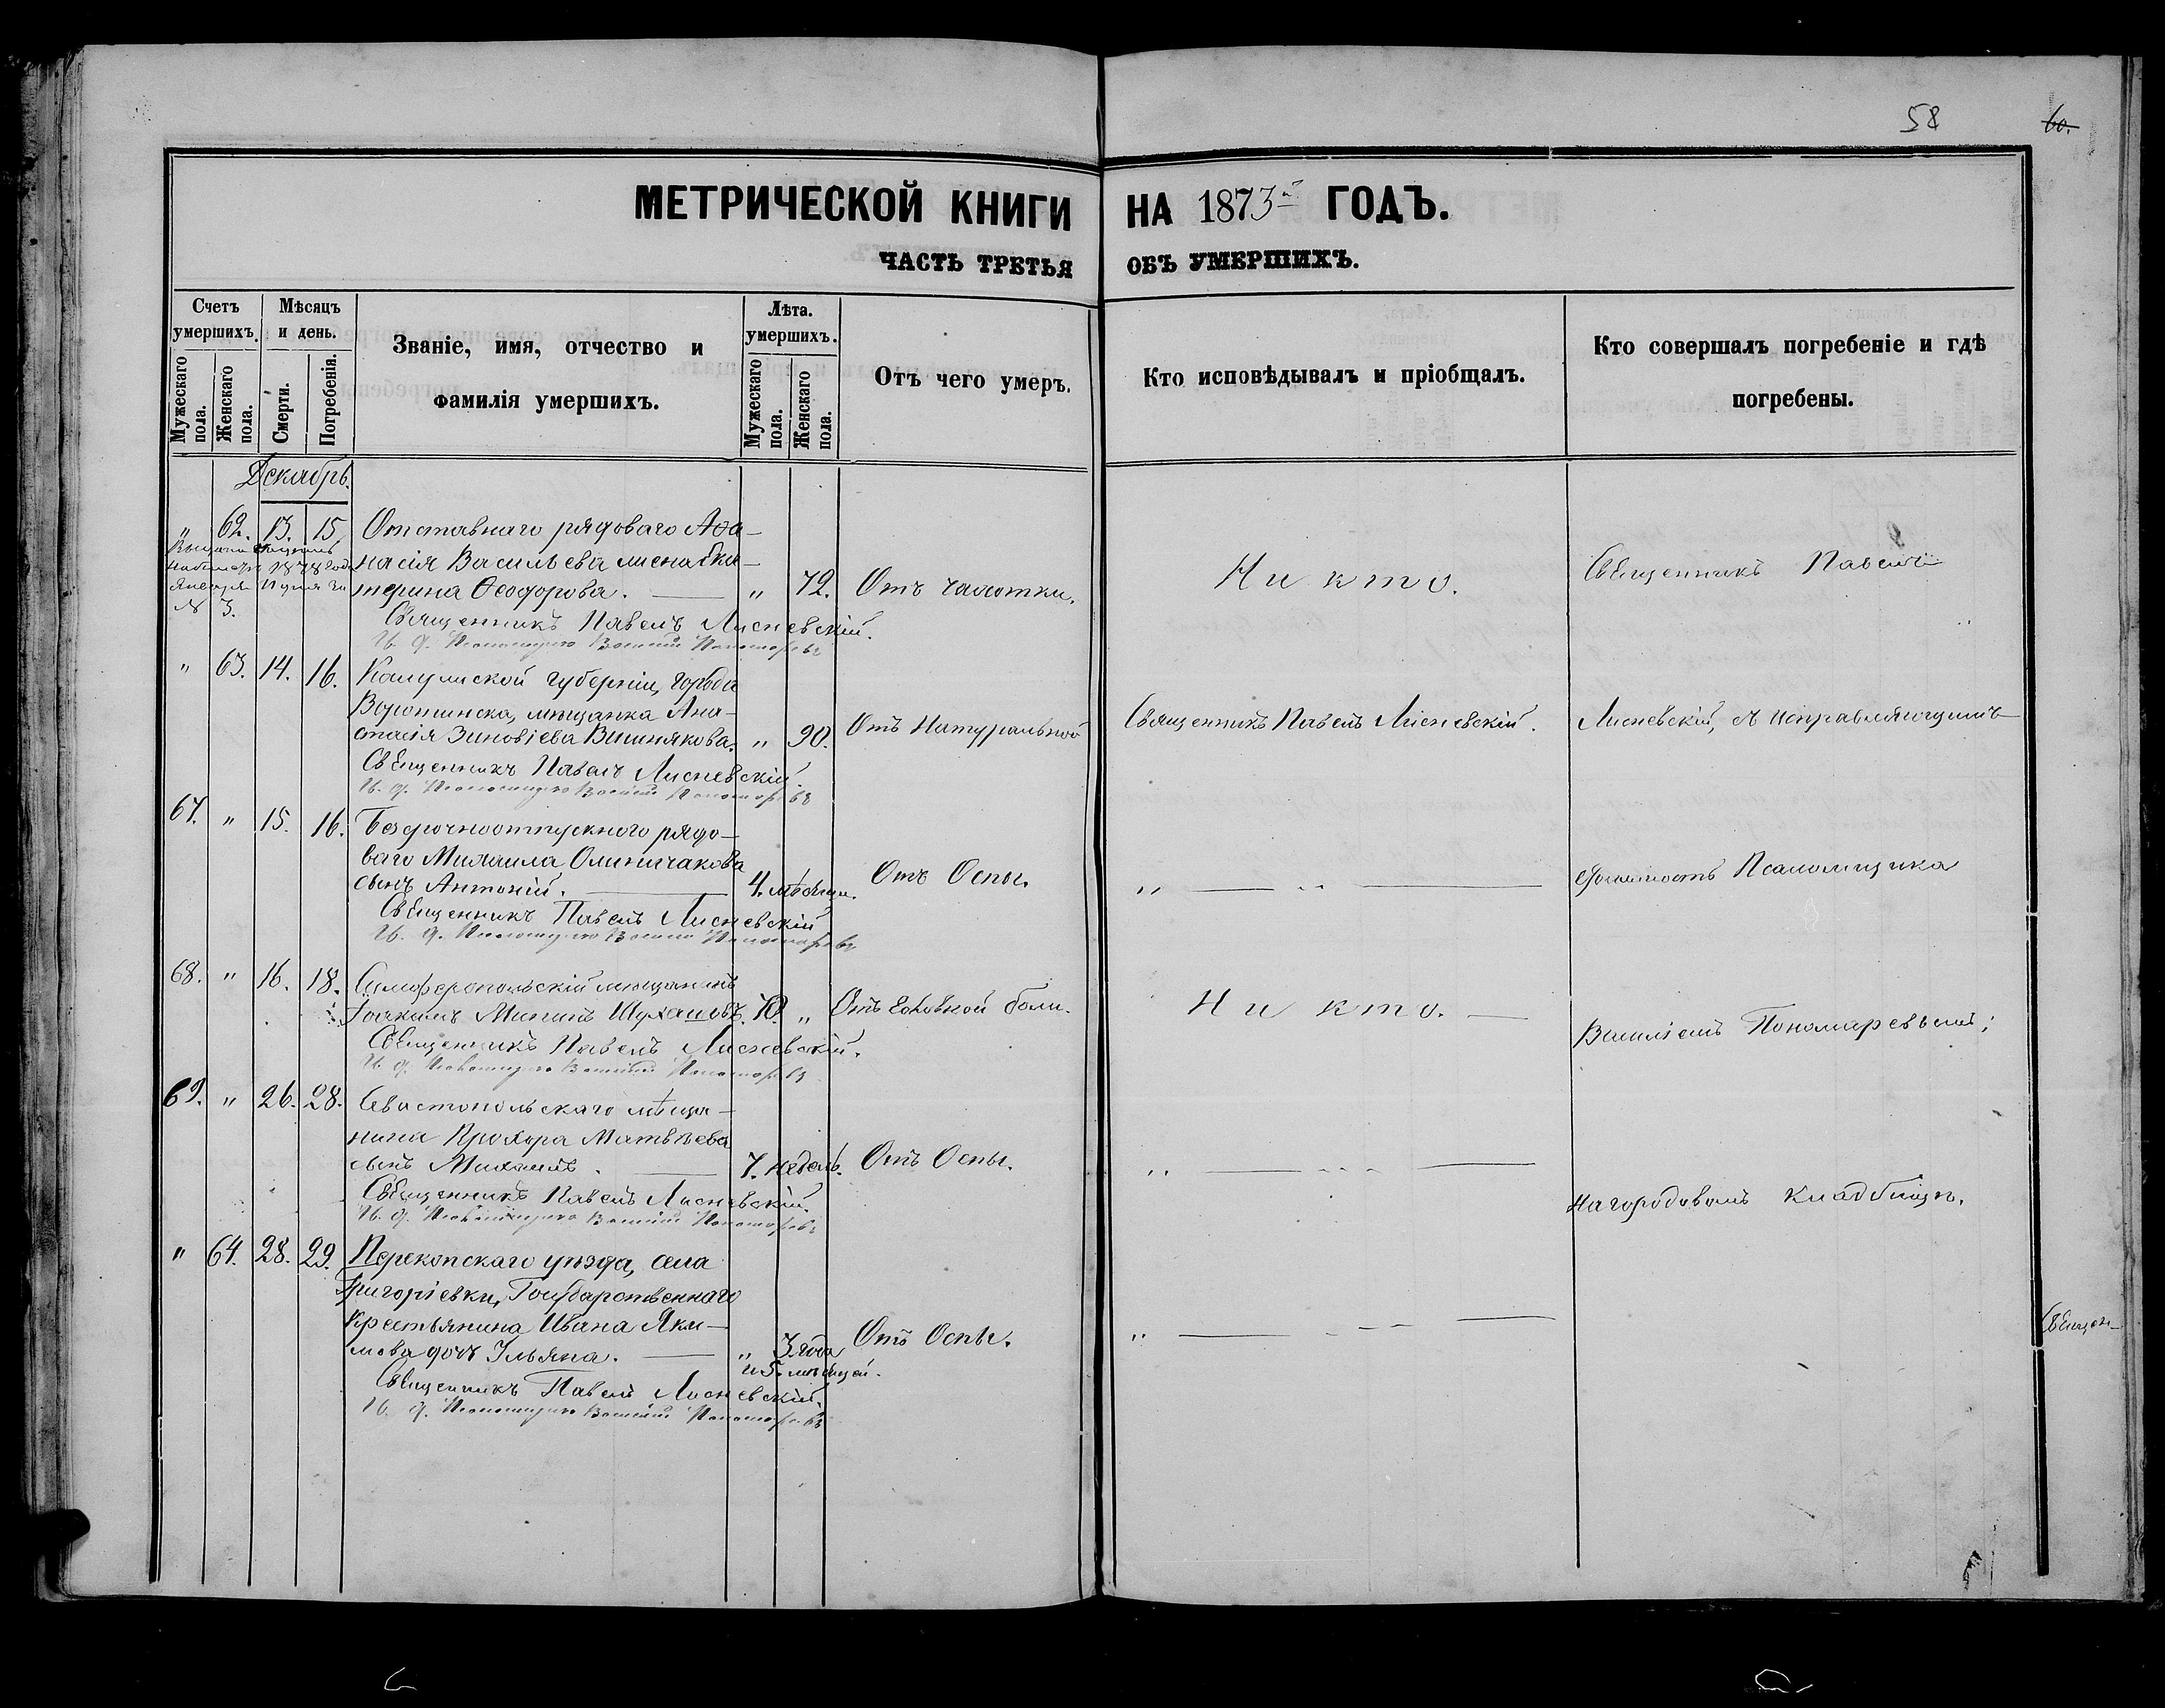 58
60.
МЕТРИЧЕСКОЙ КНИГИ НА 1873й ГОДЪ.
ЧАСТЬ ТРЕТЬЯ ОБЪ УМЕРШИХЪ.
Счетъ умершихъ.
Мужескаго пола.
Женскаго пола.
Мѣсяцъ и день.
Смерти.
Погребенія.
Званіе, имя, отчество и фамилія умершихъ.
Лѣта умершихъ.
Мужескаго пола.
Женскаго пола.
Отъ чего умеръ.
Кто исповѣдывалъ и пріобщалъ.
Кто совершалъ погребеніе и гдѣ погребены.
Декабрь.
" 62. 13. 15. Отставнаго рядоваго Аѳа-
насія Васильева жена Ека-
терина Ѳеодорова. — " 72. Отъ чахотки. Никто. Священникъ Павелъ
1878 года
Января
№ 3.
Священникъ Павелъ Лисневскій.
И. д. Псаломщика Василій Пономаревъ
" 63. 14. 16. Калужской губерніи, города
Воротынска, мѣщанка Ана-
стасія Зиновіева Вишнякова. " 90. Отъ Натуральной Священникъ Павелъ Лисневскій. Лисневскій, съ исправляющимъ
Священникъ Павелъ Лисневскій
И. д. Псаломщика Василій Пономаревъ
67. " 15. 16. Безсрочноотпускного рядо-
ваго Михаила Олиничакова
сынъ Антоній. — 4. мѣсяцы. Отъ Оспы. " — " — должность Псаломщика
Священникъ Павелъ Лисневскій
И. д. Псаломщика Василій Пономаревъ
68. " 16. 18. Симферопольскій мѣщанинъ
Іоакимъ Мининъ 70. " Отъ головной боли. Никто. — Василіемъ Пономаревымъ;
Священникъ Павелъ Лисневскій.
И. д. Псаломщика Василій Пономаревъ
69. " 26. 28. Севастопольскаго мѣща-
нина Прохора Матвѣева
сынъ Михаилъ. — 7. недѣль. Отъ Оспы. " — " — на городовомъ кладбищѣ.
Священникъ Павелъ Лисневскій.
И. д. Псаломщика Василій Пономаревъ
" 64. 28. 29. Перекопскаго уѣзда, села
Григоріевки, Государственнаго
Крестьянина Ивана Яки-
мова дочь Ульяна. — " 3 года Отъ Оспы. " — " —
и 5. мѣсяцей.
Священникъ Павелъ Лисневскій.
И. д. Псаломщика Василій Пономаревъ
Священ-